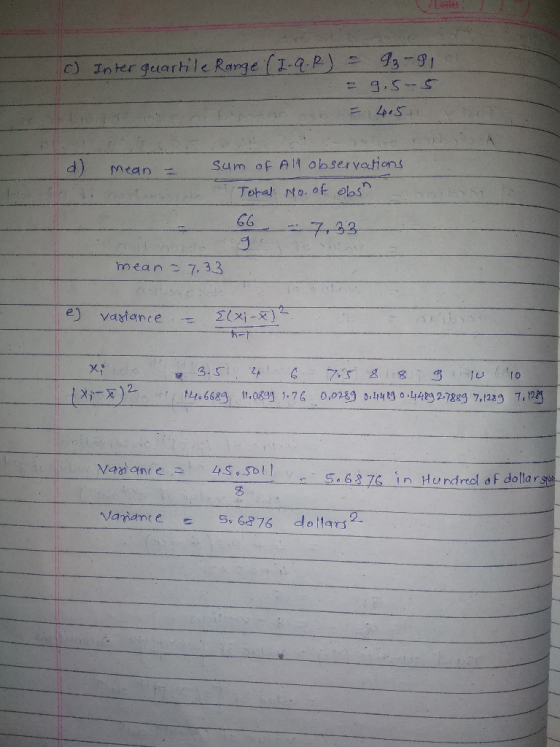 c) Inter quartile Range (I.Q.R) = q3 - q1
= 9.5 - 5
= 4.5
d) mean = Sum of All observations
Total No. of obsⁿ
= 66
9
= 7.33
mean = 7.33
e) variance = Σ(xi - x̄)²
n-1
xi 3.5 4 6 7.5 8 8 9 10 10
(xi - x̄)² 14.6689 11.0899 1.76 0.0289 0.4489 0.4489 2.7889 7.1289 7.1289
Variance = 45.5011
8
= 5.6876 in Hundred of dollar
Variance = 5.6876 dollars²